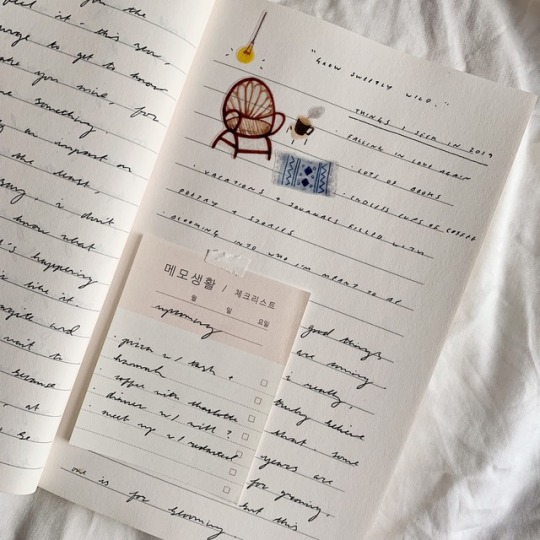 the
it. this story,
to get to know
you mine, for
something.
an impact on
the
i don't
know what
happening
like it.
and
wait to
at
be
"GROW SWEETLY WILD."
THINGS I SEEK IN 2019
· FALLING IN LOVE AGAIN
· LOTS OF BOOKS
· ENDLESS CUPS OF COFFEE
· VACATIONS & JOURNALS FILLED WITH
POETRY & STORIES
· BLOOMING INTO WHO I'M MEANT TO BE
메모생활 / 체크리스트
월 일 요일
upcoming
· pizza w/ tash +
hannah
· coffee with charlotte
· dinner w/ will ?
· meet up w/
good things
are coming
i really,
truly believe
that. some
years are
for growing,
but this
one is for blooming.